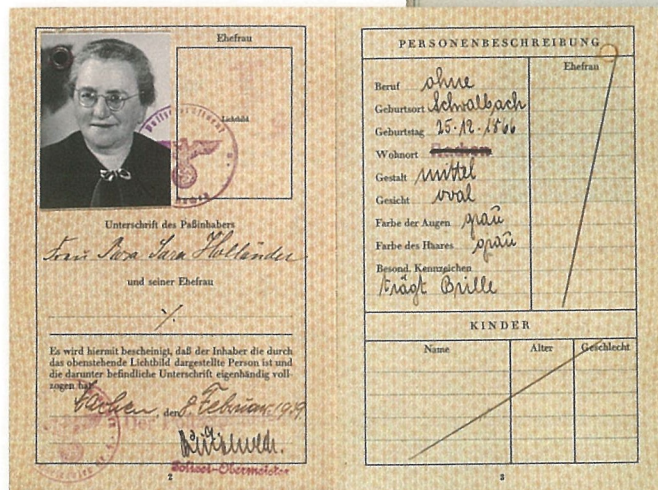 Ehefrau
Lichtbild
Unterschrift des Paßinhabers
Frau Sara Holländer
und seiner Ehefrau
Es wird hiermit bescheinigt, daß der Inhaber die durch
das obenstehende Lichtbild dargestellte Person ist und
die darunter befindliche Unterschrift eigenhändig voll-
zogen hat.
Aachen, den 8. Februar 1939
Polizei-Obermeister
2
PERSONENBESCHREIBUNG
Ehefrau
Beruf ohne
Geburtsort Schwalbach
Geburtstag 25.12.1866
Wohnort Aachen
Gestalt mittel
Gesicht oval
Farbe der Augen grau
Farbe des Haares grau
Besond. Kennzeichen
trägt Brille
KINDER
Name Alter Geschlecht
3